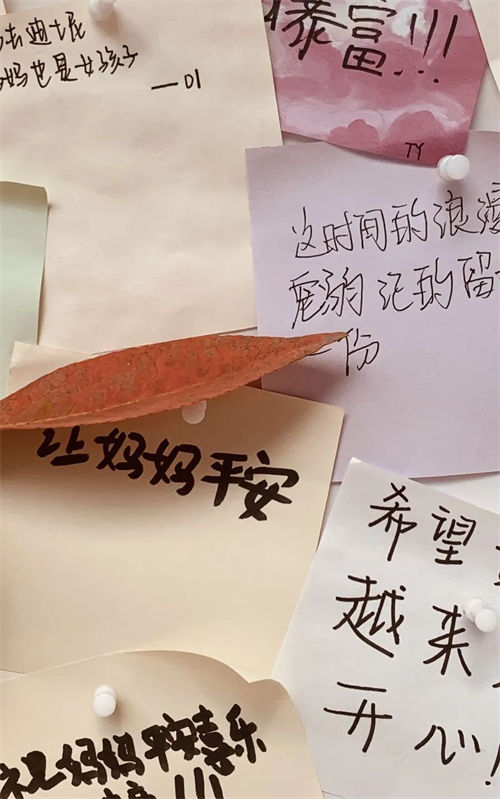 去迪士尼
妈也是女孩子
—01
暴富!!!
TY
这时间的浪漫
记的留
一份
让妈妈平安
希望
越来
开心!
祝妈妈平安喜乐
!!!